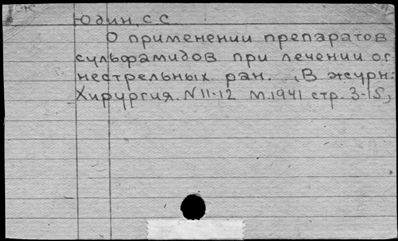 Юдин, С С
О применении препаратов
сульфамидов при лечении ог-
нестрельных ран. , В журн:
Хирургия. N 11-12 М. 1941 стр. 3-15,